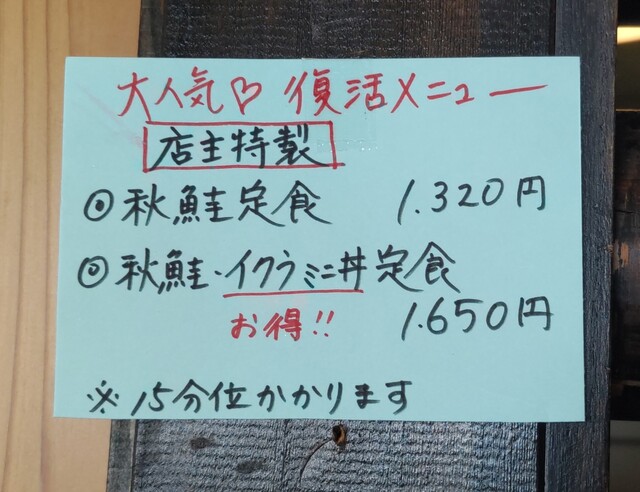 大人気♡ 復活メニュー
店主特製
◎秋鮭定食 1.320円
◎秋鮭・イクラミニ丼定食
お得!! 1.650円
※15分位かかります